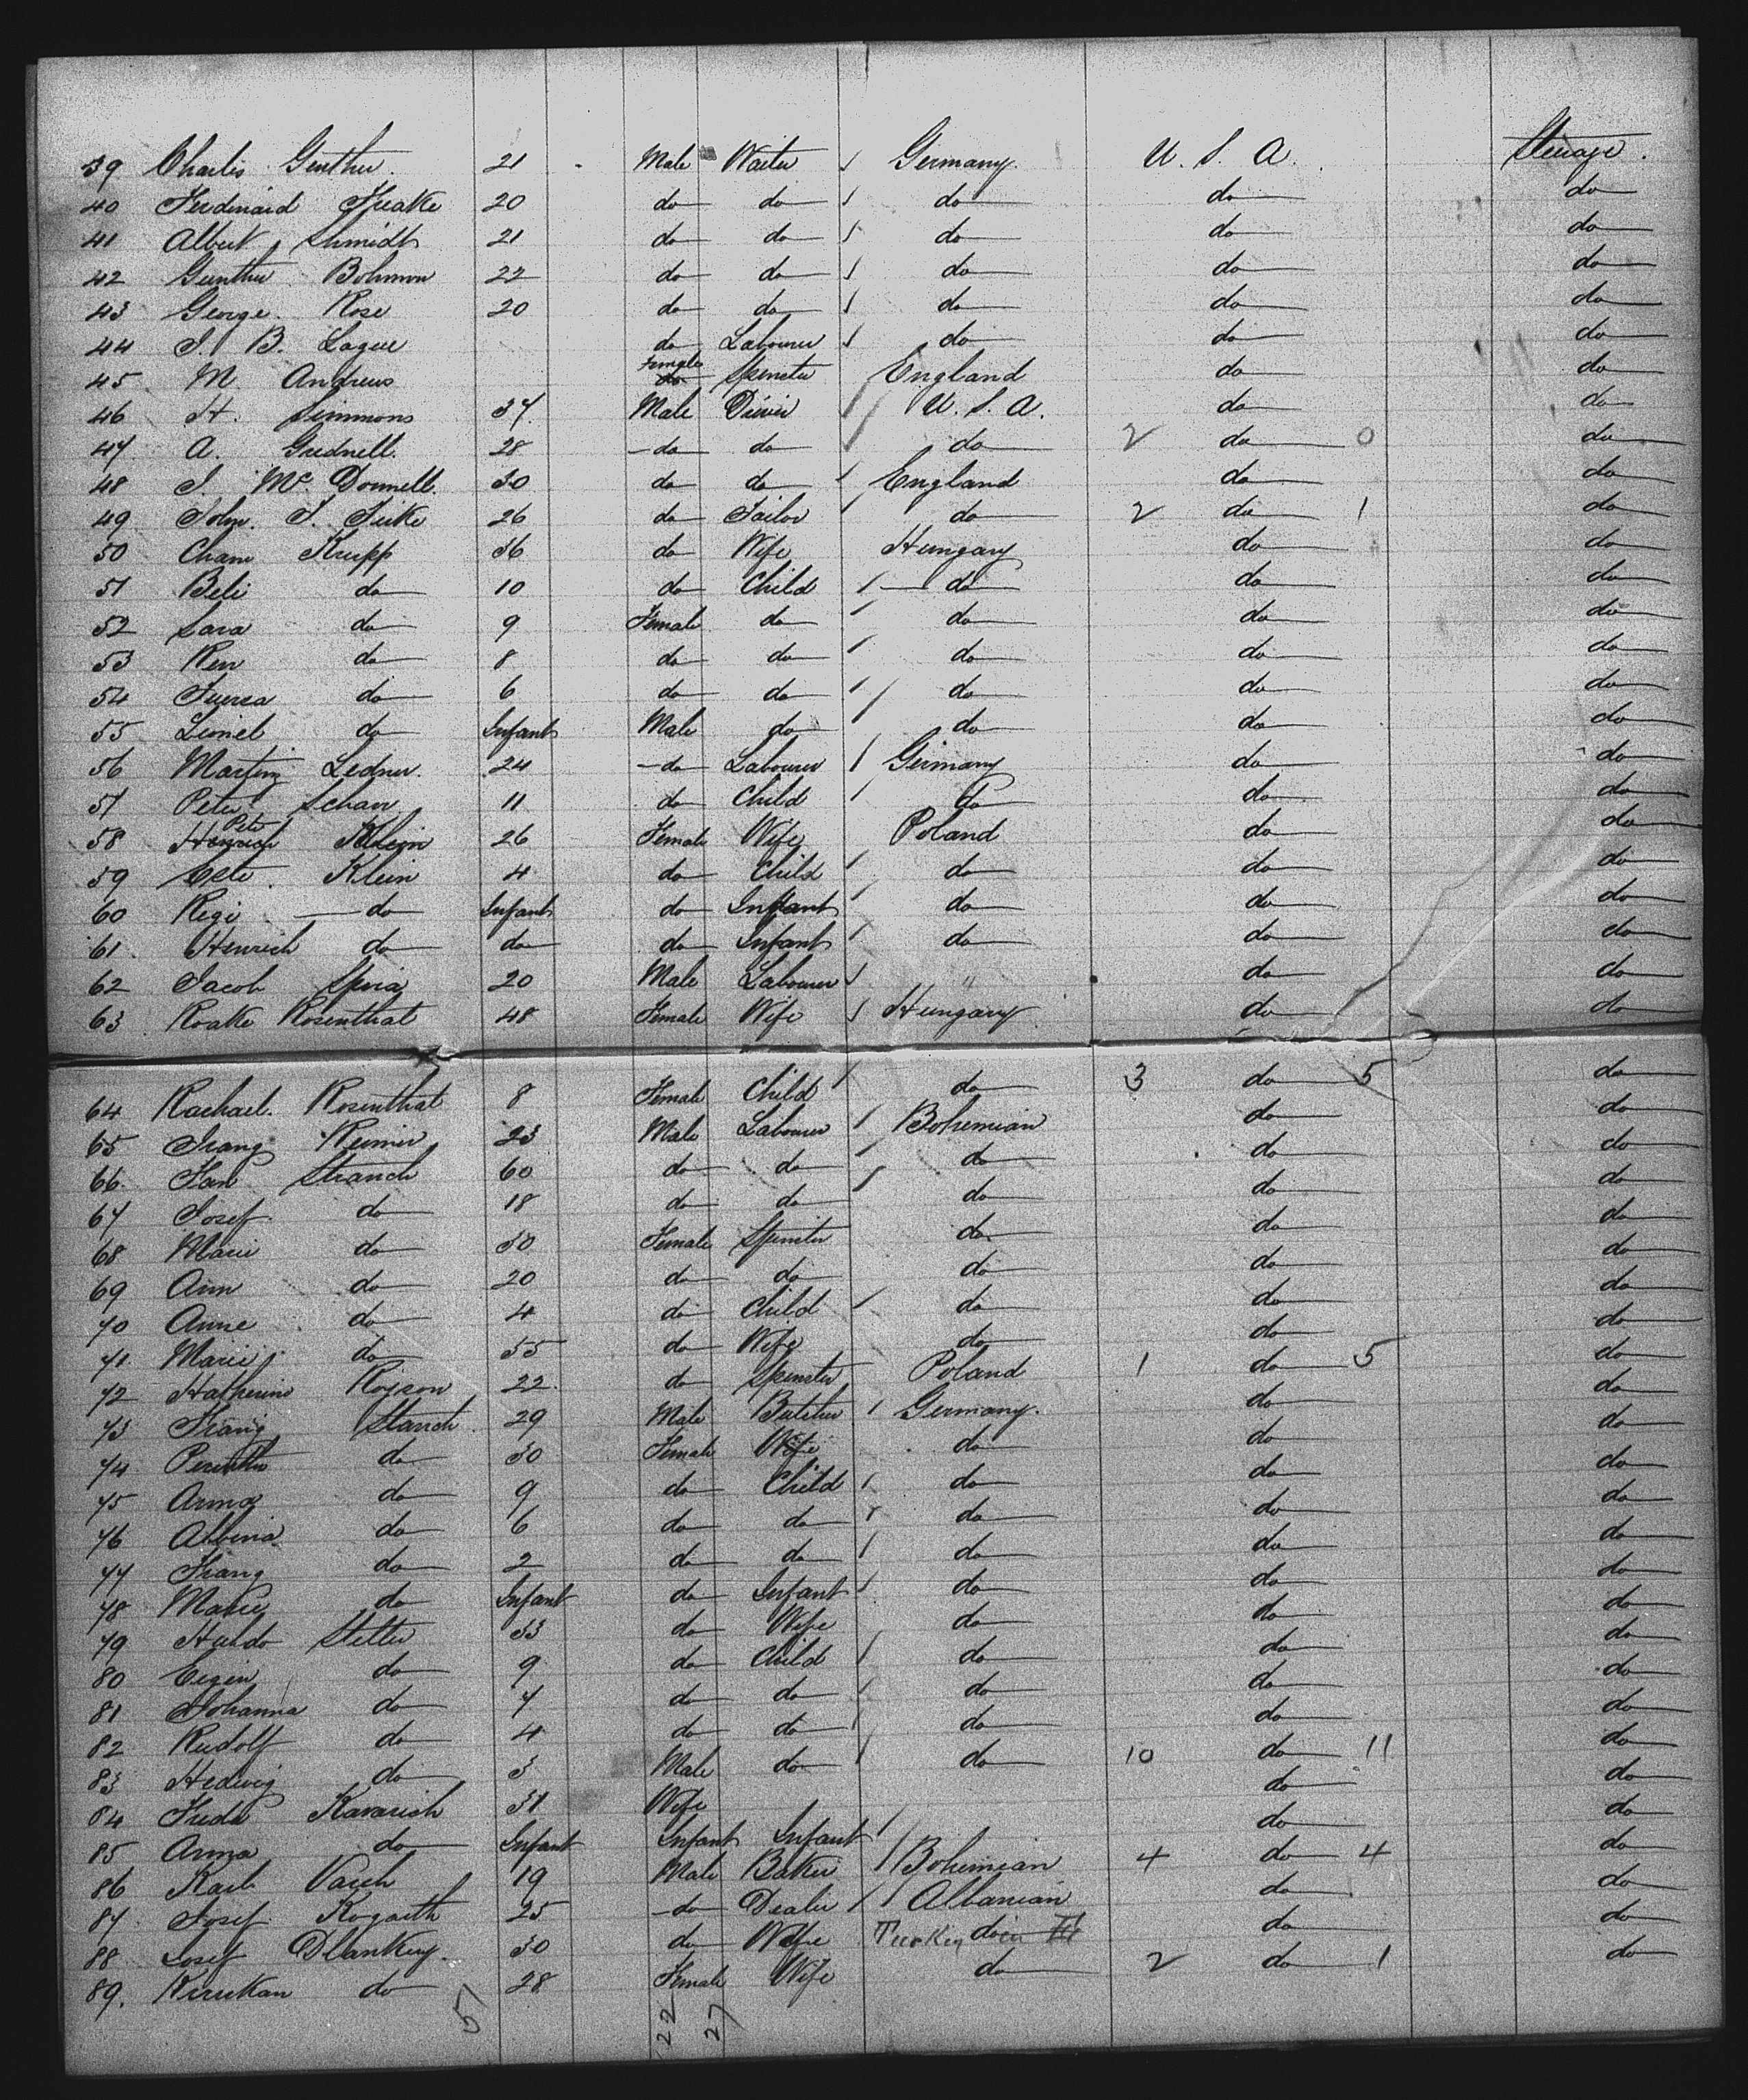 39 Charles Genther. 21 Male Waiter Germany. U. S. A. Steuage.
40 Ferdinaid 20 do do do do do
41 Albert Schmidt 21 do do do do do
42 Gunther Bohmon 22 do do do do do
43 George. Rose 20 do do do do do
44 J. B. Lague do Labourer do do do
45 M. Andrews Female do Spinster England do do
46 H. Simmons 37. Male U. S. A. do do
47 A. Grednell. 28 do do do 2 do 0 do
48 J. Mc Donnell. 30 do do England do do
49 John. J. 26 do Sailor do 2 do 1 do
50 Cham Krupp 36 do Wife Hungary do do
51 Beli do 10 do Child do do do
52 Sara do 9 Female do do do do
53 Ren do 8 do do do do do
54 do 6 do do do do do
55 Lionel do Infant Male do do do do
56 Martin Ledner. 24 do Labourer Germany do do
57 Peter Schan 11 do Child do do do
58 Henrich Pete Klein 26 Female Wife Poland do do
59 Klein 4 do Child do do do
60 Regi do Infant do Infant do do do
61. Henrich do do do Infant do do do
62 Jacob Spira 20 Male Labourer " do do
63 Roake Rosenthat 48 Female Wife Hungary do do
64 Rachael. Rosenthat 8 Female Child do 3 do 5 do
65 Frang Reimer 23 Male Labourer Bohemian do do
66. Jan Stranch 60 do do do do do
67 Josef do 18 do do do do do
68 Marie do 30 Female Spinster do do do
69 Ann do 20 do do do do do
70 Anne do 4 do Child do do do
71 Marie do 55 do Wife do do do
72 Katherine 22. do Spinster Poland 1 do 5 do
73 Frang Stanch 29 Male Butcher Germany. do do
74 do 30 Female Wife do do do
75 Anna do 9 do Child do do do
76 Albina do 6 do do do do do
77 Frang do 2 do do do do do
78 Marie do Infant do Infant do do do
79 Huldo Stetter 33 do Wife do do do
80 Eugen do 9 do Child do do do
81 Johanna do 7 do do do do do
82 Rudolf do 4 do do do do do
83 Hedwig do 3 Male do do 10 do 11 do
84 Freda Kavarish 31 Wife do do
85 Anna do Infant Infant Infant do do
86 Karl Vasch 19 Male Baker Bohemian 4 do 4 do
87. Josef Kogarth 25 do Dealer Albanian do do
88 Josef Dlankey. 30 do Wife Turkey do in do do
89. Kirukan do 28 Female Wife do 2 do 1 do
51 22 27